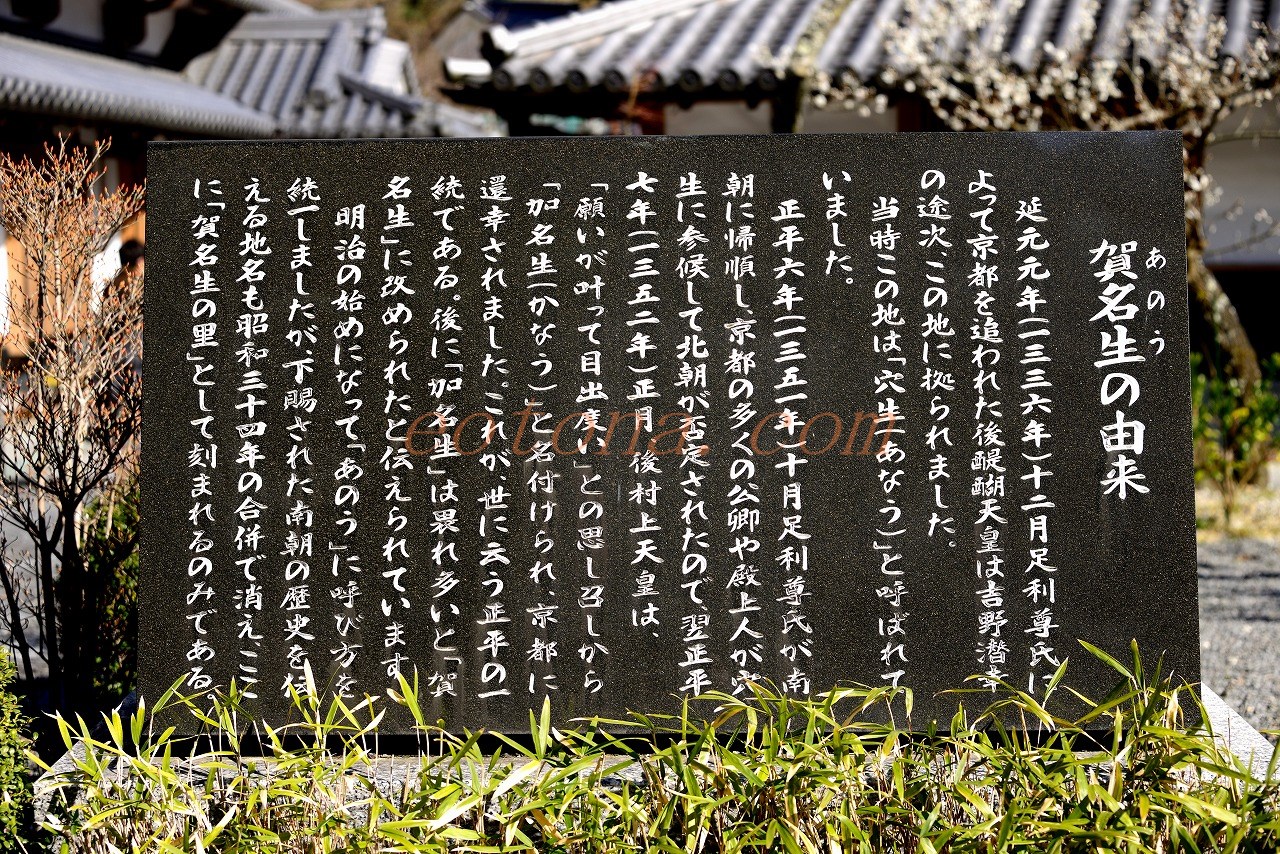 あのう
賀名生の由来
延元元年(一三三六年)十二月足利尊氏に
よって京都を追われた後醍醐天皇は吉野潜幸
の途次、この地に拠られました。
当時この地は「穴生(あなう)」と呼ばれて
いました。
正平六年(一三五一年)十月足利尊氏が南
朝に帰順し、京都の多くの公卿や殿上人が穴
生に参候して北朝が否定されたので、翌正平
七年(一三五二年)正月 後村上天皇は、
「願いが叶って目出度い」との思し召しから
「加名生(かなう)」と名付けられ、京都に
還幸されました。これが、世に云う正平の一
統である。後に「加名生」は畏れ多いと「賀
名生」に改められたと伝えられています
明治の始めになって「あのう」に呼び方を
統一しましたが、下賜された南朝の歴史を伝
える地名も昭和三十四年の合併で消え、ここ
に「賀名生の里」として刻まれるのみである
eotona.com